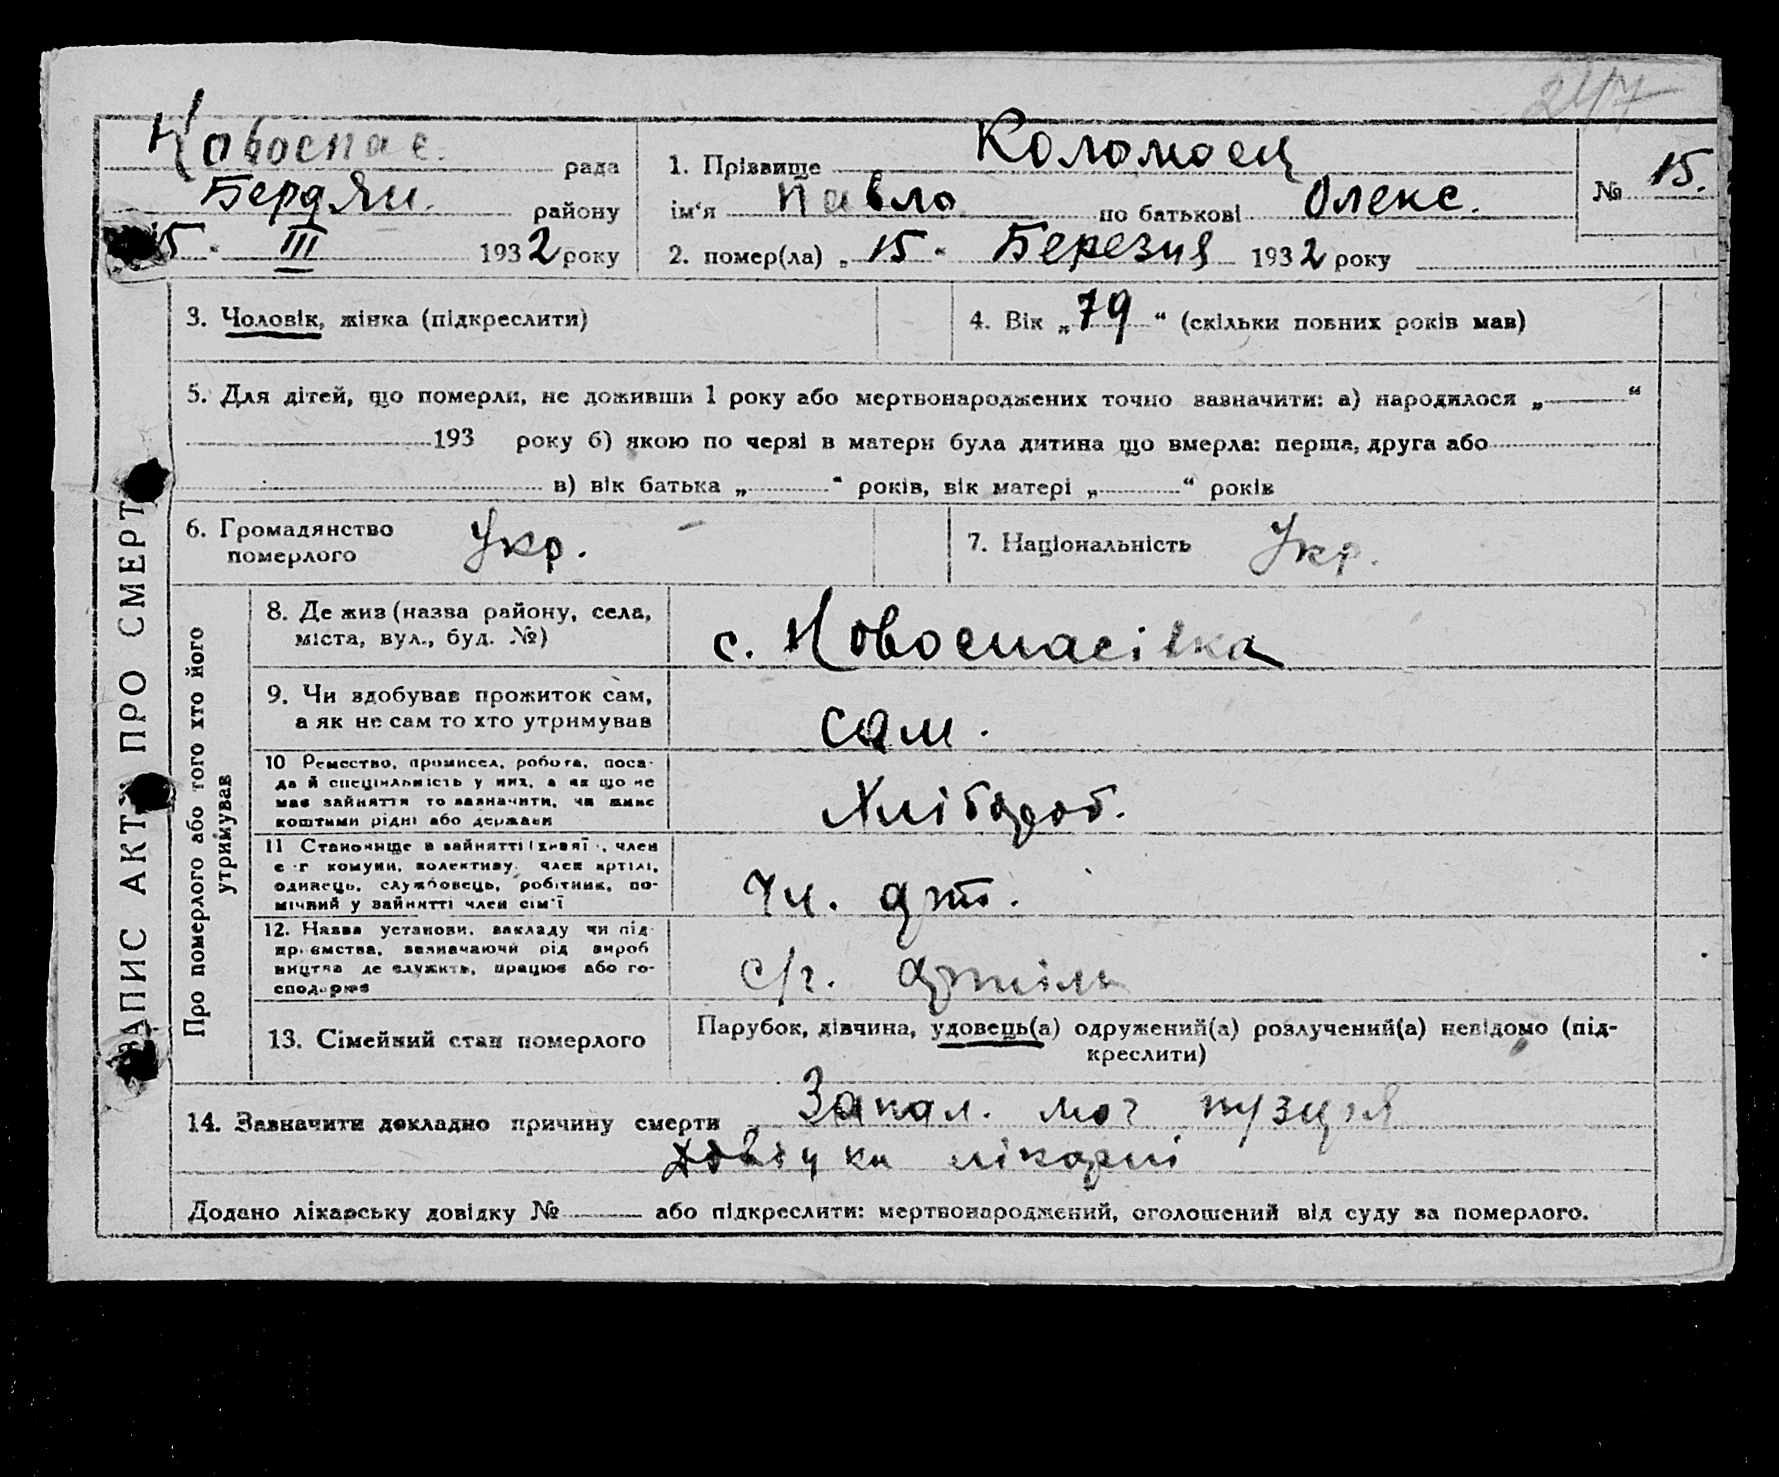 247
Новоспас. рада
Бердян. району
15 " III 1932 року
1. Прізвище Коломоец
ім'я Павло по батькові Олекс.
№ 15.
2. помер(ла) „15" Березня 1932 року
ЗАПИС АКТУ ПРО СМЕРТЬ
3. Чоловік, жінка (підкреслити)
4. Вік „79" (скільки повних років мав)
5. Для дітей, що померли, не доживши 1 року або мертвонароджених точно зазначити: а) народилося „ "
193 року б) якою по черзі в матери була дитина що вмерла: перша, друга або
в) вік батька „ " років, вік матері „ " років
6. Громадянство
померлого Укр.
7. Національність Укр.
Про померлого або того хто його
утримував
8. Де жив (назва району, села,
міста, вул., буд. №)
с. Новоспасівка
9. Чи здобував прожиток сам,
а як не сам то хто утримував
сам.
10 Ремество, промисел, робота, поса-
да й спеціяльність у них, а як що не
мав зайняття то зазначити, чи живе
коштами рідні або держави
Хлібороб.
11 Становище в зайнятті (хазяї, член
с-г комуни, колективу, член артілі,
одинець, службовець, робітник, по-
мічний у зайнятті член сім'ї
Чл. арт.
12. Назва установи, закладу чи під-
приємства, зазначаючи рід вироб
ництва де служить, працює або го-
сподарює
с/г. артіль
13. Сімейний стан померлого
Парубок, дівчина, удовець(а) одружений(а) розлучений(а) невідомо (під-
креслити)
14. Зазначити докладно причину смерти Запал. моч пузиря
довідка лікарні
Додано лікарську довідку № або підкреслити: мертвонароджений, оголошений від суду за померлого.